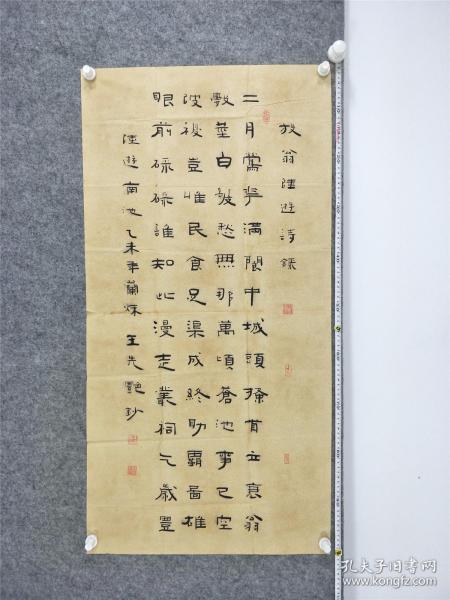 放翁陸遊詩錄
二月鶯華滿閬中城頭搔首立衰翁
數莖白髮愁無那萬頃蒼池事已空
陂復豈惟民食足渠成終助霸圖雄
眼前碌碌誰知此漫走叢祠乞歲豐
陸遊南池乙未年蘭秌王先艷抄
孔夫子旧书网
www.kongfz.com